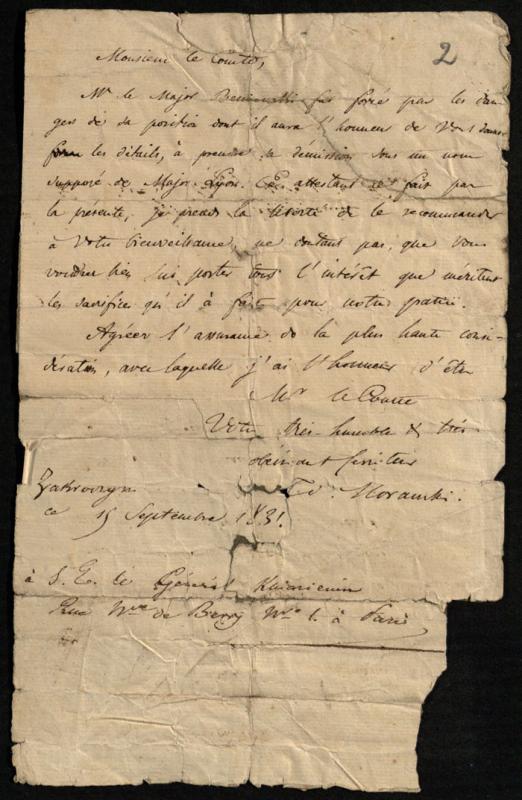 2
Monsieur le Comte,
Mr le Major fut forcé par les dan-
gers de sa position dont il aura l'honneur de Vous donner
les détails, à prendre sa démission sous un nom
supposé de Major Lyon. En attestant ce fait par
la présente, je prends la liberté de le recommander
à Votre bienveillance, ne doutant pas, que Vous
voudrez bien lui porter tout l'intérêt que méritent
les sacrifices qu'il à fait pour notre patrie.
Agréer l'assurance de la plus haute consi-
dération, avec laquelle j'ai l'honneur d'être
Mr le Comte
Votre très humble & très
obéissant serviteur
Th. Morawski.
Zakroczym
ce 15 Septembre 1831.
à S. E. le Général Kniaziewicz
Rue Nve de Berry Nro 1. à Paris